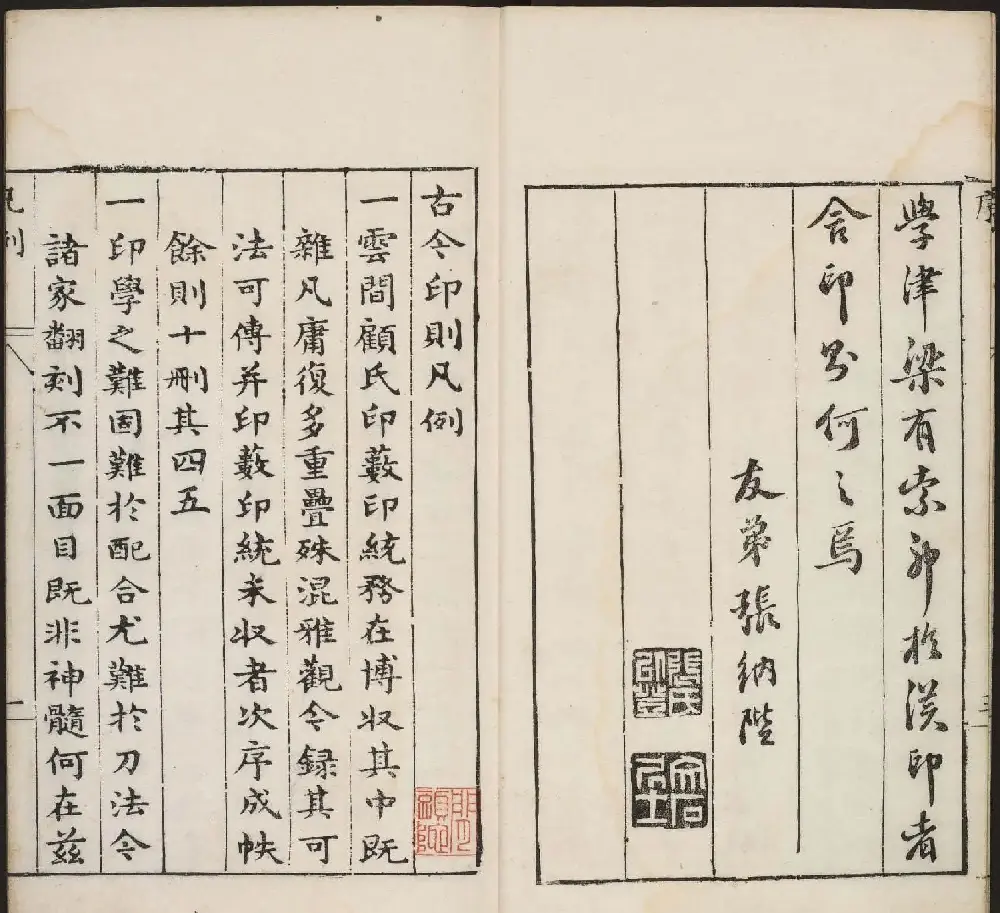 學津梁有索印於漢印者
舍印則何之焉
友弟張納陛
古今印則凡例
一雲間顧氏印藪印統務在博収其中既
雜凡庸復多重疊殊混雅觀今録其可
法可傳并印藪印統未収者次序成帙
餘則十刪其四五
一印學之難固難於配合尤難於刀法今
諸家翻刻不一面目既非神髓何在兹
凡例
一